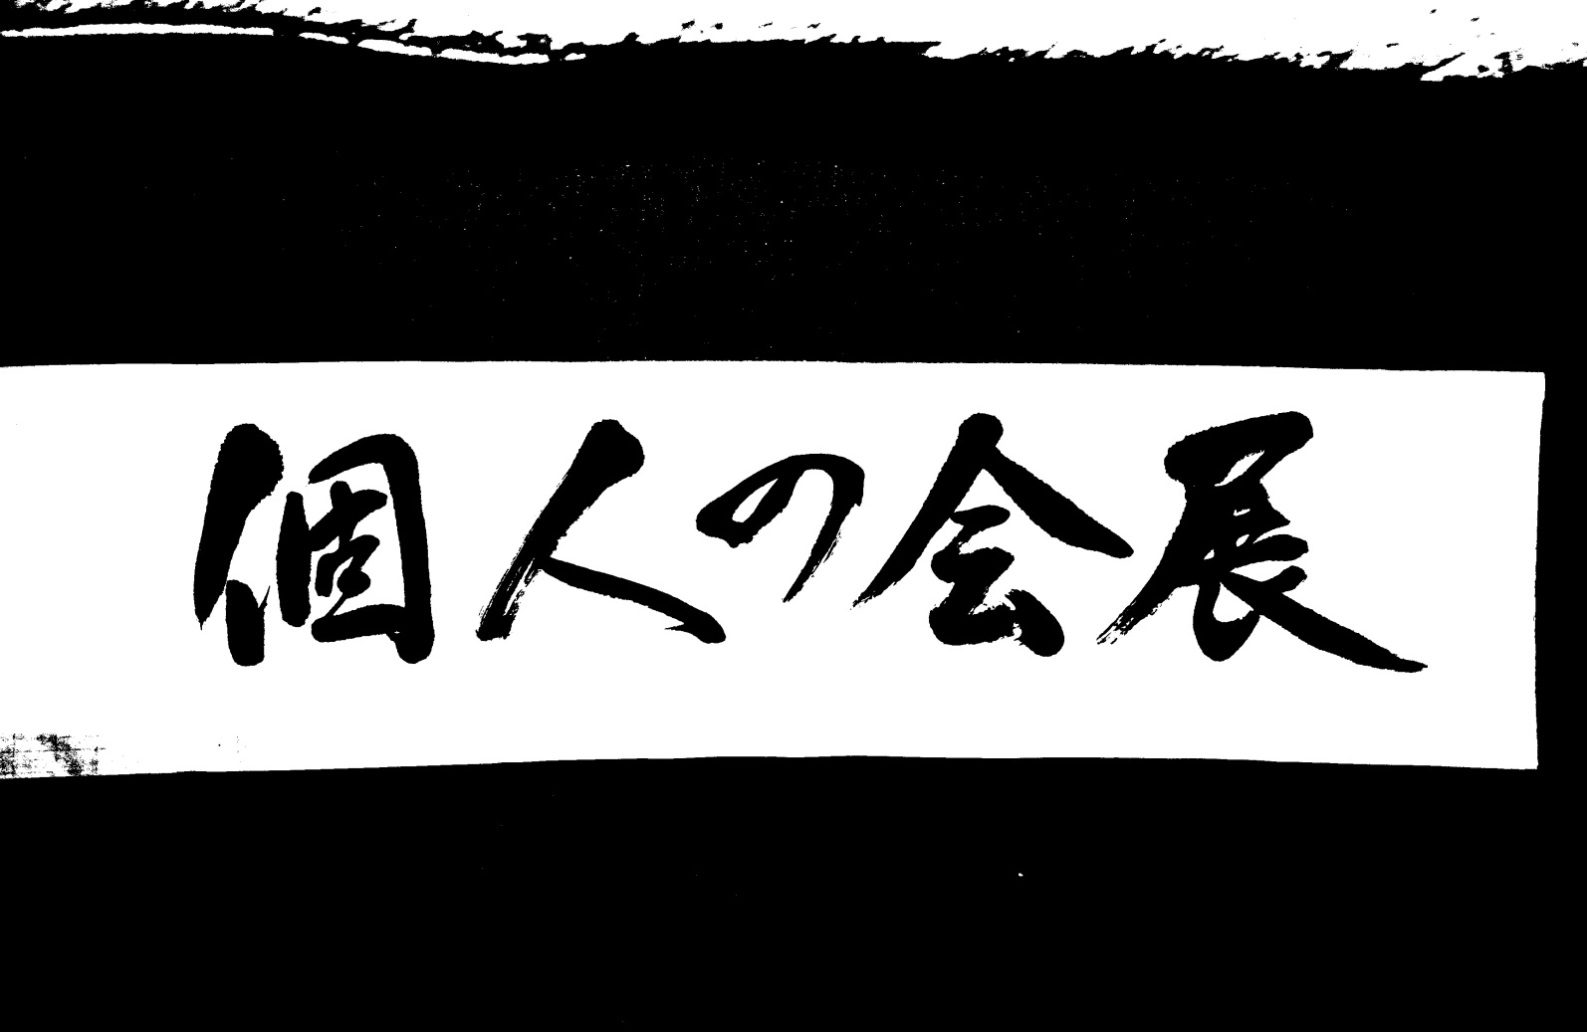 個人の会展